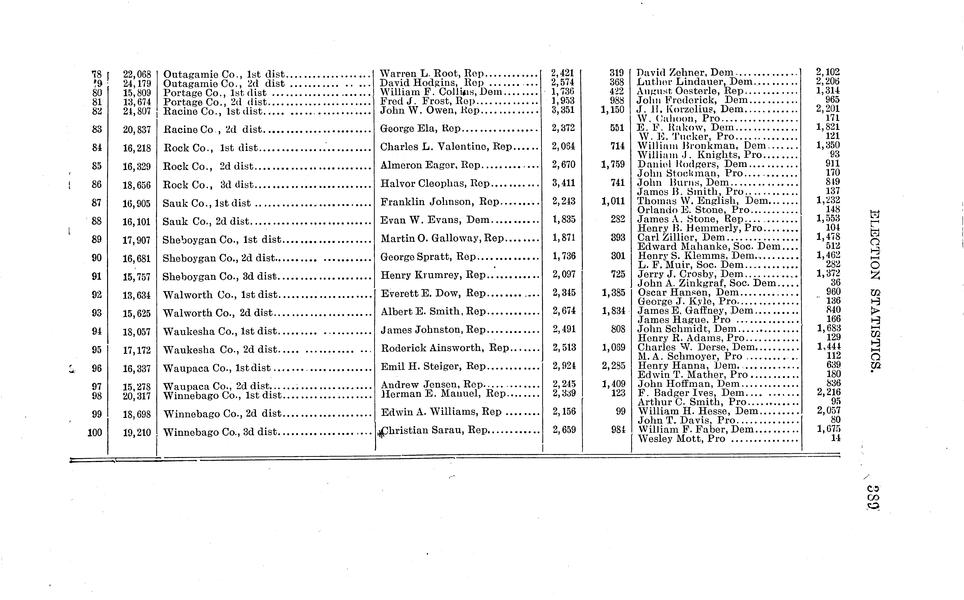 78 22,068 Outagamie Co., 1st dist Warren L. Root, Rep 2,421 319 David Zehner, Dem 2,102
79 24,179 Outagamie Co., 2d dist David Hodgins, Rep 2,574 368 Luther Lindauer, Dem 2,206
80 15,809 Portage Co., 1st dist William F. Collins, Dem 1,736 422 August Oesterle, Rep 1,314
81 13,674 Portage Co., 2d dist Fred J. Frost, Rep 1,953 988 John Frederick, Dem 965
82 24,807 Racine Co., 1st dist John W. Owen, Rep 3,351 1,150 J. H. Korzelius, Dem 2,201
W. Cahoon, Pro 171
83 20,837 Racine Co., 2d dist George Ela, Rep 2,372 551 E. F. Rakow, Dem 1,821
W. E. Tucker, Pro 121
84 16,218 Rock Co., 1st dist Charles L. Valentine, Rep 2,064 714 William Bronkman, Dem 1,350
William J. Knights, Pro 93
85 16,329 Rock Co., 2d dist Almeron Eager, Rep 2,670 1,759 Daniel Rodgers, Dem 911
John Stockman, Pro 170
86 18,656 Rock Co., 3d dist Halvor Cleophas, Rep 3,411 741 John Burns, Dem 849
James B. Smith, Pro 137
87 16,905 Sauk Co., 1st dist Franklin Johnson, Rep 2,243 1,011 Thomas W. English, Dem 1,232
Orlando E. Stone, Pro 148
88 16,101 Sauk Co., 2d dist Evan W. Evans, Dem 1,835 282 James A. Stone, Rep 1,553
Henry B. Hemmerly, Pro 104
89 17,907 Sheboygan Co., 1st dist Martin O. Galloway, Rep 1,871 393 Carl Zillier, Dem 1,478
Edward Mahanke, Soc. Dem 512
90 16,681 Sheboygan Co., 2d dist George Spratt, Rep 1,736 301 Henry S. Klemms, Dem 1,462
L. F. Muir, Soc. Dem 282
91 15,757 Sheboygan Co., 3d dist Henry Krumrey, Rep 2,097 725 Jerry J. Crosby, Dem 1,372
John A. Zinkgraf, Soc. Dem 36
92 13,634 Walworth Co., 1st dist Everett E. Dow, Rep 2,345 1,385 Oscar Hansen, Dem 960
George J. Kyle, Pro 136
93 15,625 Walworth Co., 2d dist Albert E. Smith, Rep 2,674 1,834 James E. Gaffney, Dem 840
James Hague. Pro 166
94 18,057 Waukesha Co., 1st dist James Johnston, Rep 2,491 808 John Schmidt, Dem 1,683
Henry R. Adams, Pro 129
95 17,172 Waukesha Co., 2d dist Roderick Ainsworth, Rep 2,513 1,069 Charles W. Derse, Dem 1,444
M. A. Schmoyer, Pro 112
96 16,337 Waupaca Co., 1st dist Emil H. Steiger, Rep 2,924 2,285 Henry Hanna, Dem. 639
Edwin T. Mather, Pro 180
97 15,278 Waupaca Co., 2d dist Andrew Jensen, Rep 2,245 1,409 John Hoffman, Dem 836
98 20,317 Winnebago Co., 1st dist Herman E. Manuel, Rep 2,339 123 F. Badger Ives, Dem 2,216
Arthur C. Smith, Pro 95
99 18,698 Winnebago Co., 2d dist Edwin A. Williams, Rep 2,156 99 William H. Hesse, Dem 2,057
John T. Davis, Pro 80
100 19,210 Winnebago Co., 3d dist Christian Sarau, Rep 2,659 984 William F. Faber, Dem 1,675
Wesley Mott, Pro 14
ELECTION STATISTICS.
389